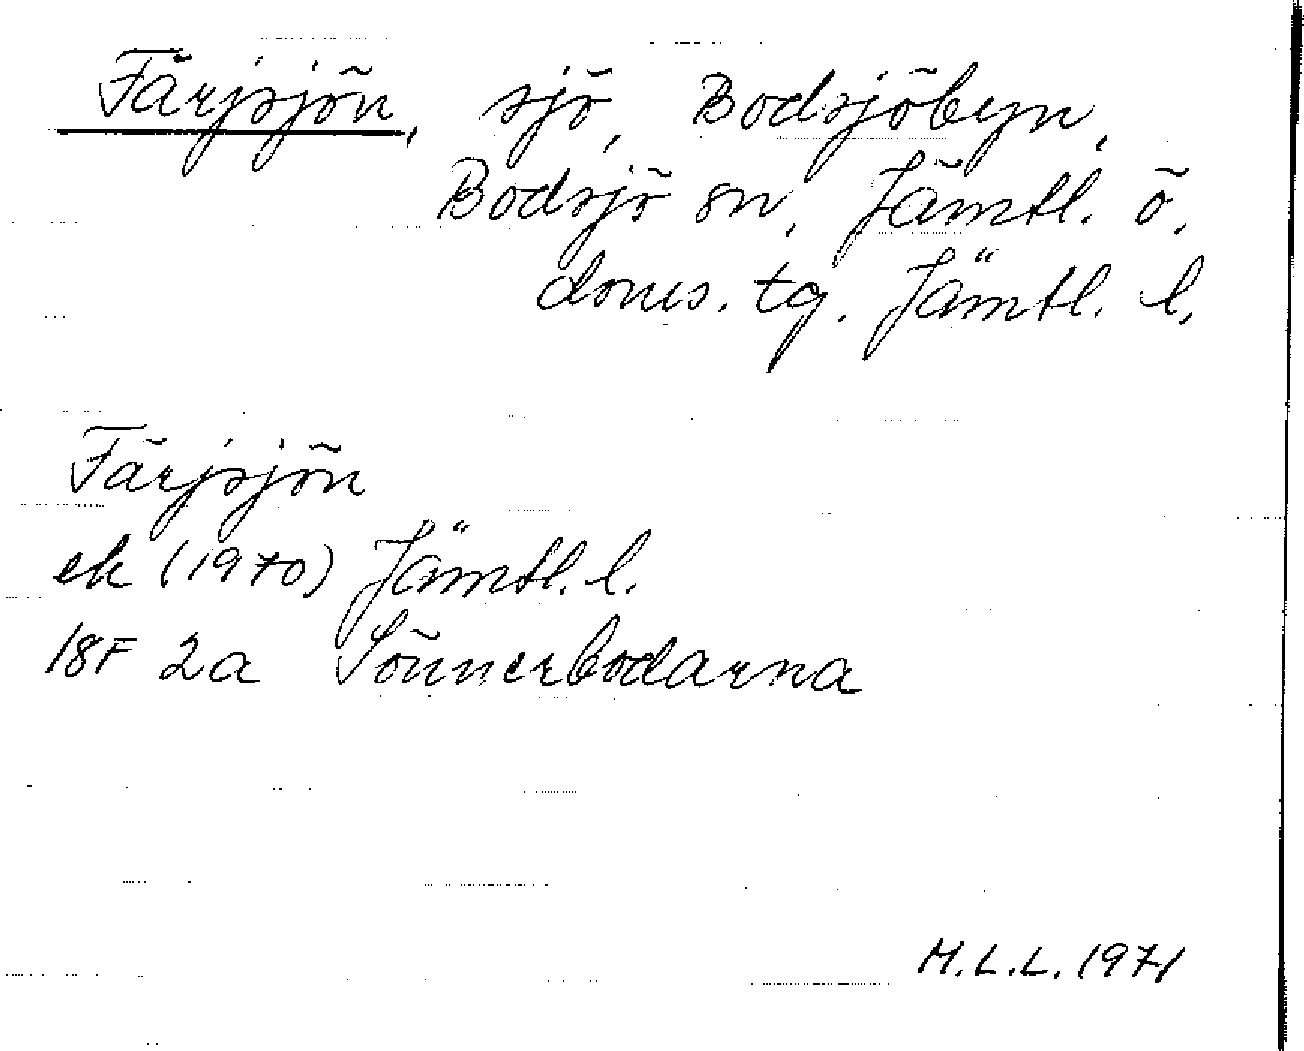 Färjsjön, sjö, Bodsjöbyn,
Bodsjö sn, Jämtl. ö.
doms. tg. Jämtl. l.
Färjsjön
ek (1970) Jämtl. l.
18F 2a Sönnerbodarna
M.L.L. 1971